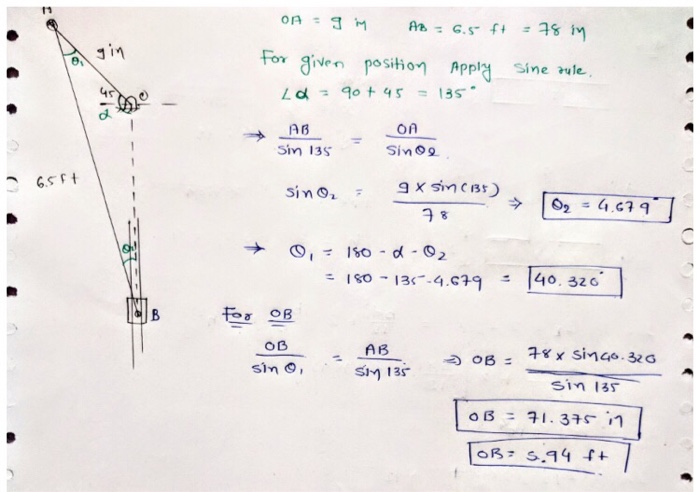 OA = 9 in AB = 6.5 ft = 78 in
For given position Apply sine rule.
∠α = 90 + 45 = 135°
⇒ AB / sin 135 = OA / sin θ2
sin θ2 = 9 × sin(135) / 78 ⇒ θ2 = 4.679°
→ θ1 = 180 - α - θ2
= 180 - 135 - 4.679 = 40.320°
For OB
OB / sin θ1 = AB / sin 135 ⇒ OB = 78 × sin 40.320 / sin 135
OB = 71.375 in
OB = 5.94 ft
A
9 in
θ1
45
O
α
6.5 ft
θ2
B